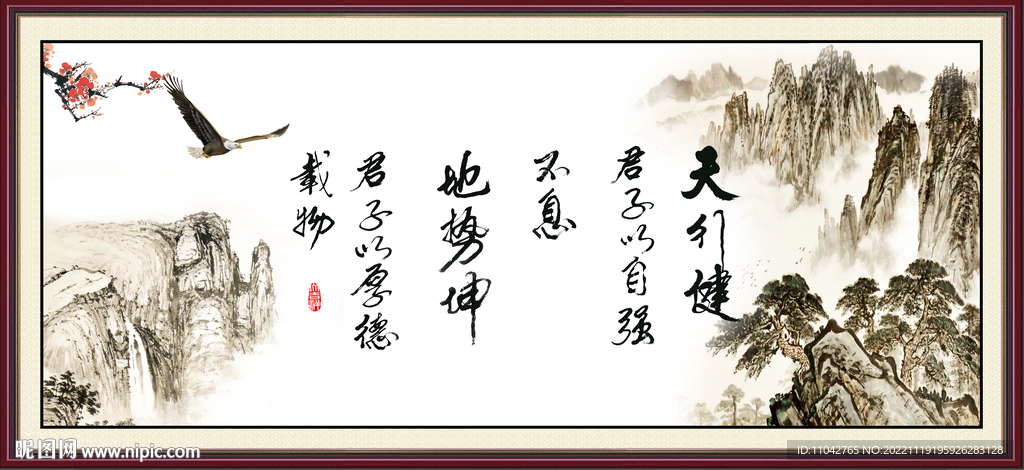 天行健
君子以自强
不息
地势坤
君子以厚德
载物
昵图网 www.nipic.com
ID:11042765 NO:20221119195926283128